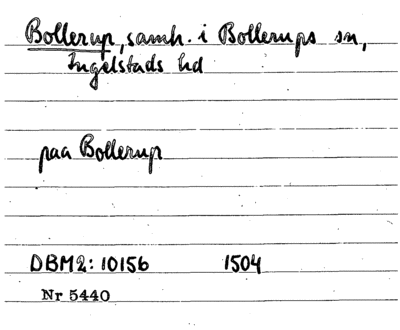 Bollerup, samh. i Bollerups sn,
Ingelstads hd
paa Bollerup
DBM2: 10156 1504
Nr 5440